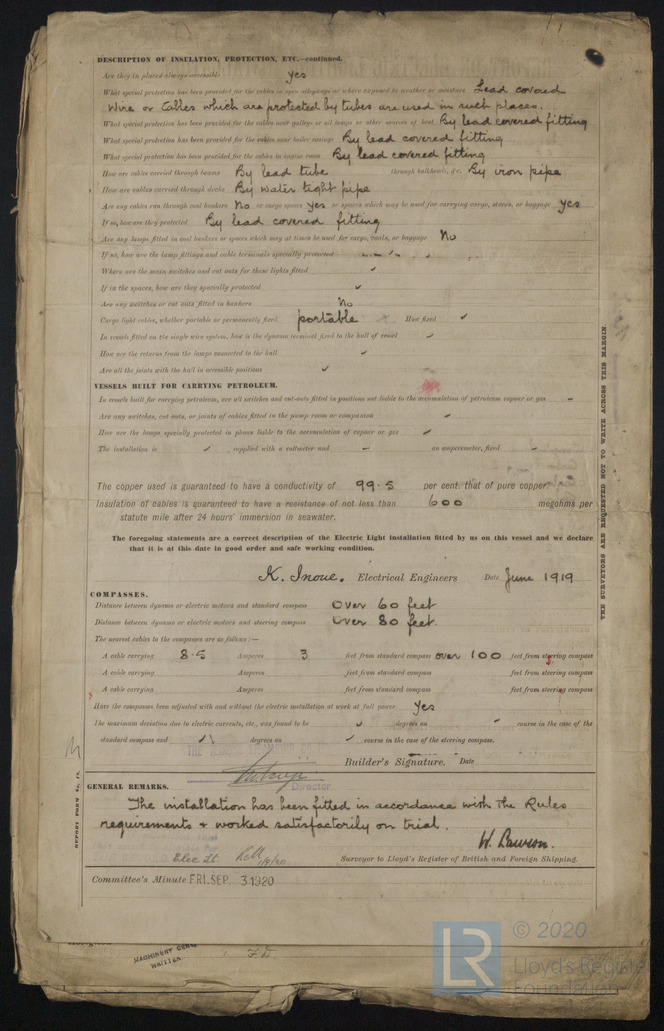 DESCRIPTION OF INSULATION, PROTECTION, ETC.—continued.
Are they in places always accessible yes
What special protection has been provided for the cables in open alleyways or where exposed to weather or moisture Lead covered
wire or Cables which are protected by tubes are used in such places.
What special protection has been provided for the cables near galleys or oil lamps or other sources of heat By lead covered fitting
What special protection has been provided for the cables near boiler casings By lead covered fitting
What special protection has been provided for the cables in engine room By lead covered fitting
How are cables carried through beams By lead tube through bulkheads, &c. By iron pipe
How are cables carried through decks By water tight pipe
Are any cables run through coal bunkers No or cargo spaces yes or spaces which may be used for carrying cargo, stores, or baggage yes
If so, how are they protected By lead covered fitting
Are any lamps fitted in coal bunkers or spaces which may at times be used for cargo, coals, or baggage No
If so, how are the lamp fittings and cable terminals specially protected
Where are the main switches and cut outs for these lights fitted ✓
If in the spaces, how are they specially protected ✓
Are any switches or cut outs fitted in bunkers No
Cargo light cables, whether portable or permanently fixed portable How fixed ✓
In vessels fitted on the single wire system, how is the dynamo terminal fixed to the hull of vessel ✓
How are the returns from the lamps connected to the hull ✓
Are all the joints with the hull in accessible positions ✓
VESSELS BUILT FOR CARRYING PETROLEUM.
In vessels built for carrying petroleum, are all switches and cut-outs fitted in positions not liable to the accumulation of petroleum vapour or gas –
Are any switches, cut outs, or joints of cables fitted in the pump room or companion ✓
How are the lamps specially protected in places liable to the accumulation of vapour or gas ✓
The installation is ✓ supplied with a voltmeter and – an amperemeter, fixed –
The copper used is guaranteed to have a conductivity of 99.5 per cent. that of pure copper.
Insulation of cables is guaranteed to have a resistance of not less than 600 megohms per
statute mile after 24 hours' immersion in seawater.
The foregoing statements are a correct description of the Electric Light installation fitted by us on this vessel and we declare
that it is at this date in good order and safe working condition.
K. Inoue. Electrical Engineers Date June 1919
COMPASSES.
Distance between dynamo or electric motors and standard compass Over 60 feet
Distance between dynamo or electric motors and steering compass Over 80 feet.
The nearest cables to the compasses are as follows:—
A cable carrying 8.5 Amperes 3 feet from standard compass over 100 feet from steering compass
A cable carrying Amperes feet from standard compass feet from steering compass
A cable carrying Amperes feet from standard compass feet from steering compass
Have the compasses been adjusted with and without the electric installation at work at full power yes
The maximum deviation due to electric currents, etc., was found to be ✓ degrees on course in the case of the
standard compass and degrees on ✓ course in the case of the steering compass.
Director
Builder's Signature. Date
GENERAL REMARKS.
The installation has been fitted in accordance with the Rules
requirements & worked satisfactorily on trial.
W. Lawson.
Elec Lt
Surveyor to Lloyd's Register of British and Foreign Shipping.
Committee's Minute FRI. SEP. 3 1920
THE SURVEYORS ARE REQUESTED NOT TO WRITE ACROSS THIS MARGIN.
MACHINERY CERT.
WRITTEN
LR
© 2020
Lloyd's Register
Foundation